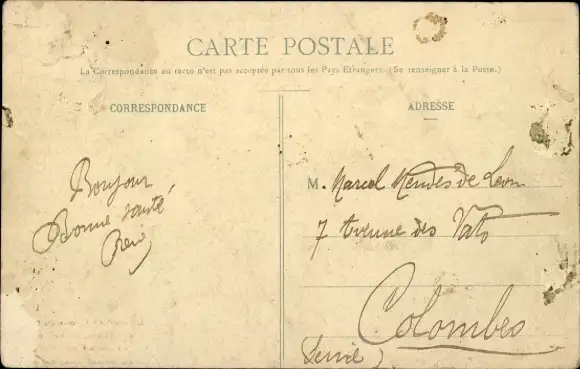 CARTE POSTALE
La Correspondance au recto n'est pas acceptée par tous les Pays Etrangers. (Se renseigner à la Poste.)
CORRESPONDANCE
Bonjour
Bonne santé
ADRESSE
M. Marcel Mendes de Leon
7 Avenue des
Colombes
(Seine)